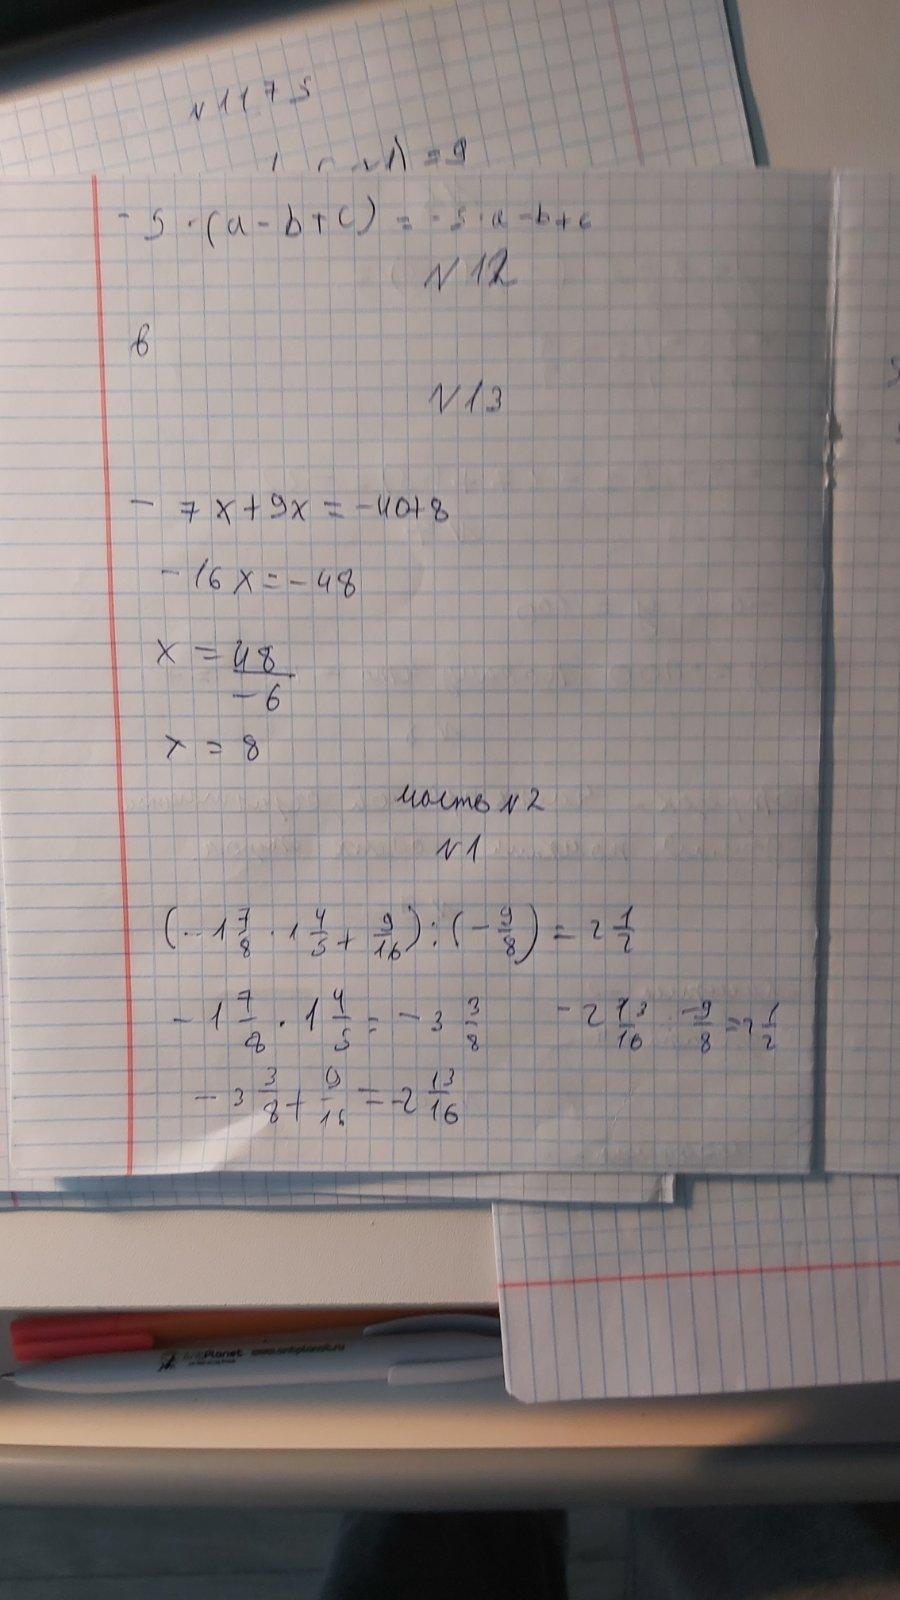 N1175
= 9
- 5 · (a - b + c) = - 5 · a - b + c
N 12
в
N 13
- 7x + 9x = -40+8
- 16x = - 48
x = 48/-6
x = 8
часть N2
N1
(- 1 7/8 · 1 4/5 + 9/16) : (- 9/8) = 2 1/2
- 1 7/8 · 1 4/5 = - 3 3/8 - 2 13/16 -9/8 = 2 1/2
- 3 3/8 + 9/16 = -2 13/16
ArtPlanet www.artplanet.ru